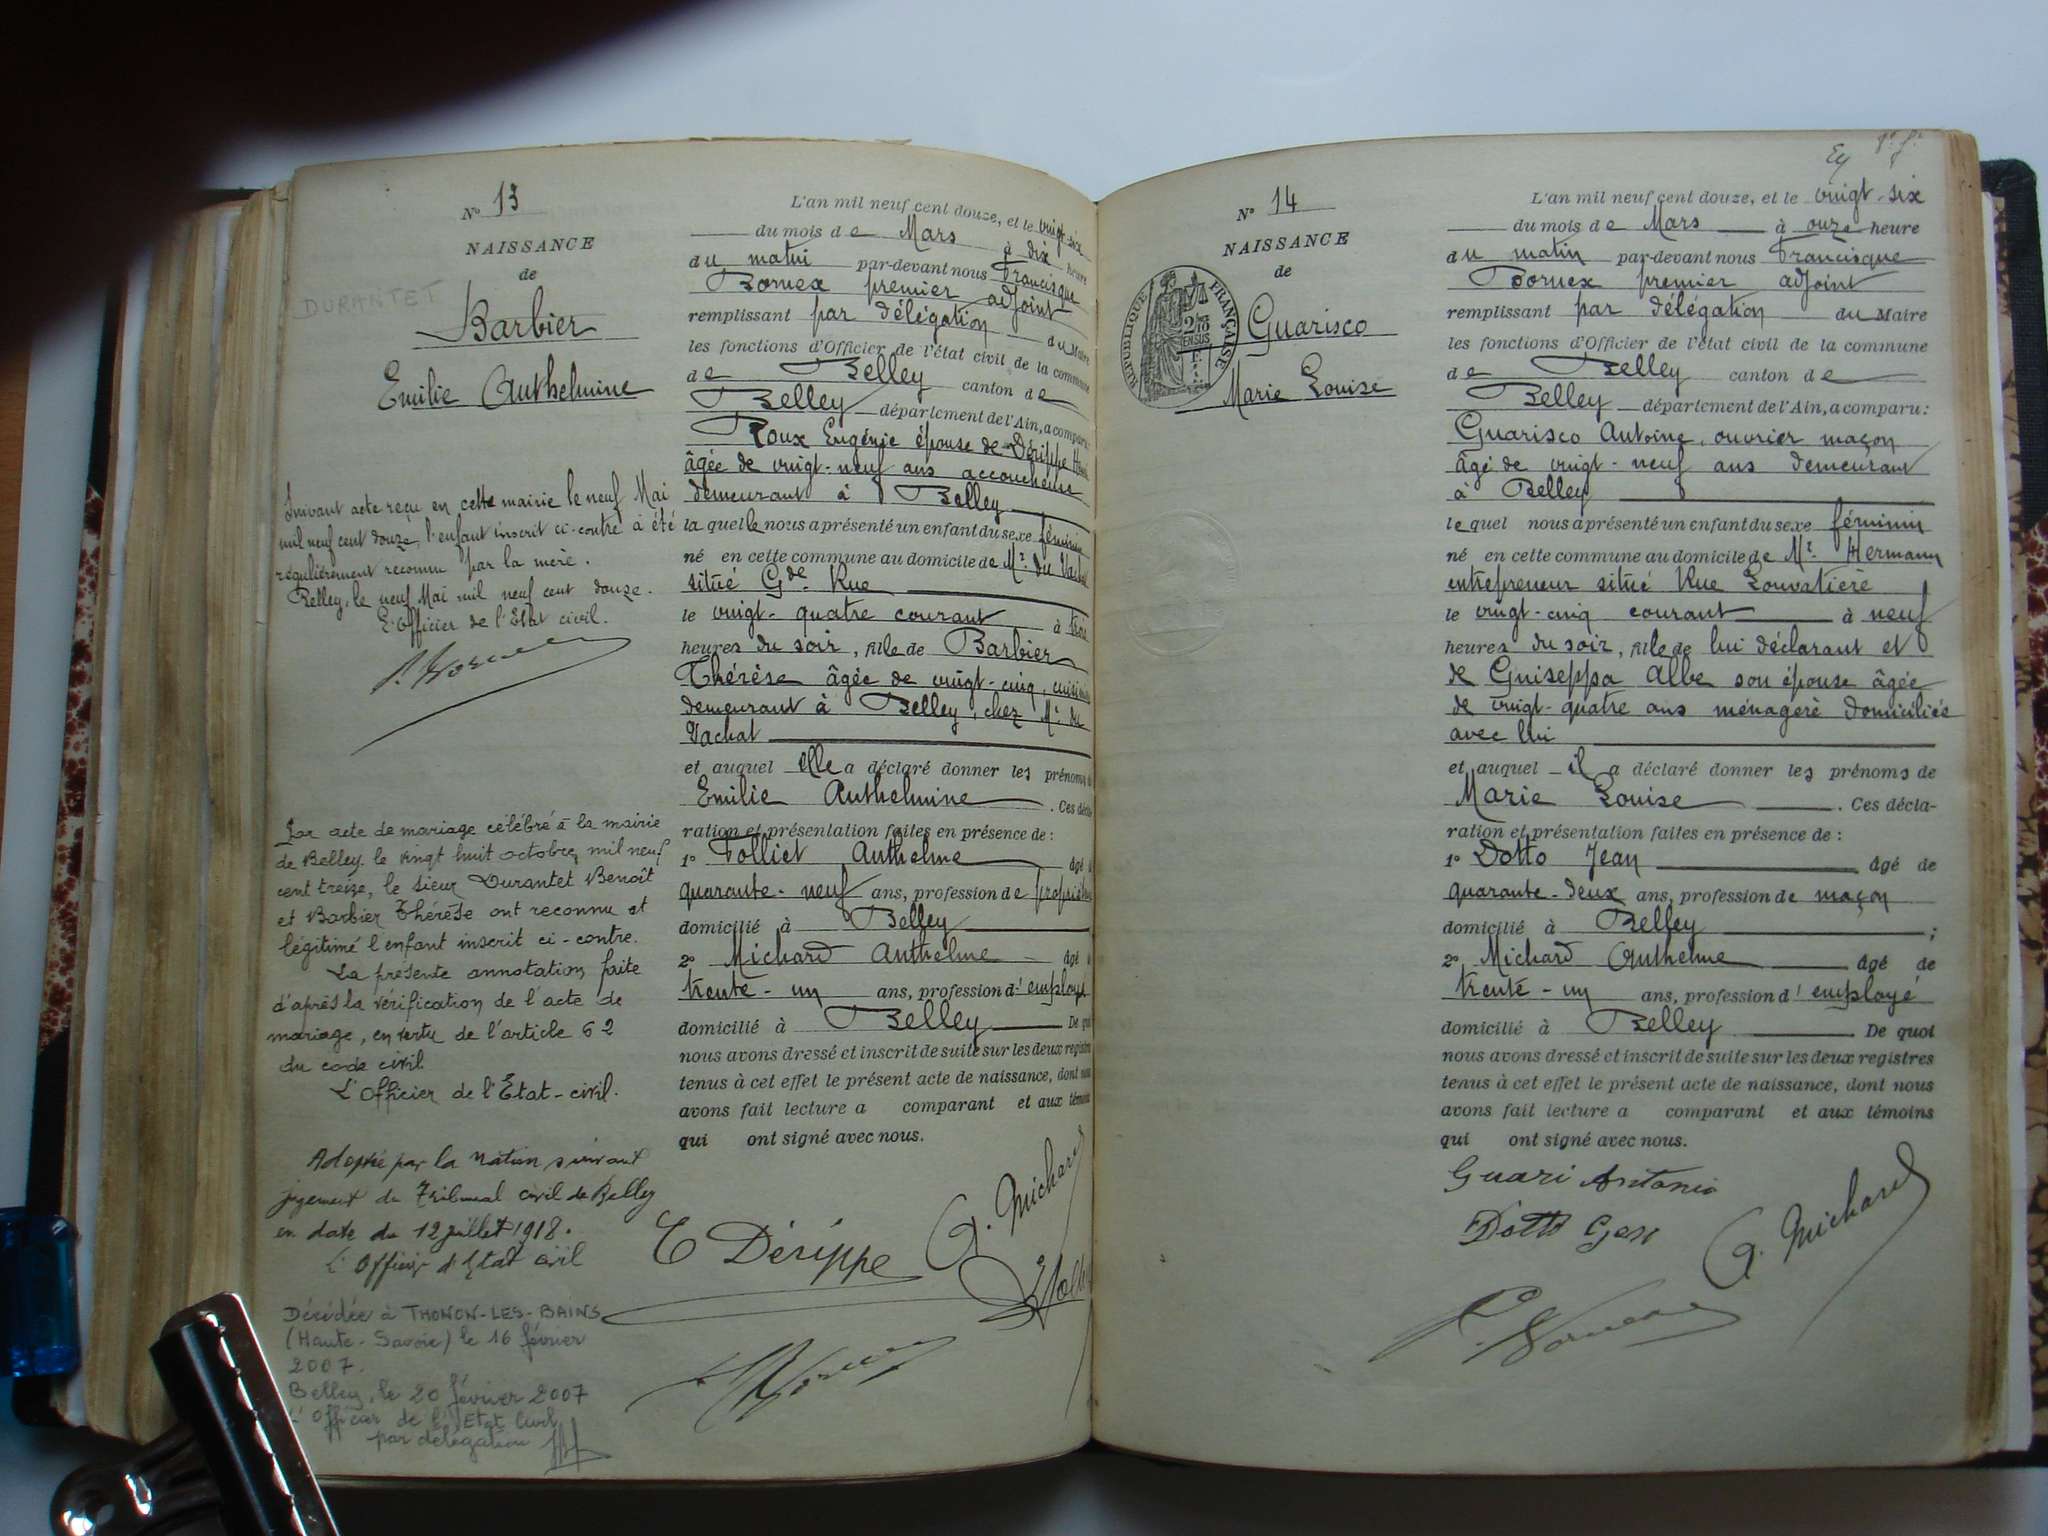 N° 13
NAISSANCE
de
DURANTET
Barbier
Emilie Anthelmine
Suivant acte reçu en cette mairie le neuf Mai
mil neuf cent douze, l'enfant inscrit ci-contre a été
régulièrement reconnu par la mère.
Belley, le neuf Mai mil neuf cent douze.
L'Officier de l'Etat civil.
Par acte de mariage célébré à la mairie
de Belley le vingt huit octobre mil neuf
cent treize, le sieur Durantet Benoît
et Barbier Thérèse ont reconnu et
légitimé l'enfant inscrit ci-contre.
La présente annotation faite
d'après la vérification de l'acte de
mariage, en vertu de l'article 62
du code civil
L'Officier de l'Etat-civil.
Adoptée par la Nation suivant
jugement du Tribunal civil de Belley
en date du 12 juillet 1918.
L'Officier d'Etat civil
Décédée à THONON-LES-BAINS
(Haute-Savoie) le 16 février
2007.
Belley, le 20 février 2007
L'Officier de l'Etat Civil
par délégation
L'an mil neuf cent douze, et le vingt-six
du mois de Mars à dix heure
du matin par-devant nous Francisque
Bornex premier adjoint
remplissant par délégation du Maire
les fonctions d'Officier de l'état civil de la commune
de Belley canton de
Belley département de l'Ain, a comparu:
Roux Eugénie épouse de Dérippe
âgée de vingt-neuf ans accoucheuse
demeurant à Belley
laquelle nous a présenté un enfant du sexe féminin
né en cette commune au domicile de Mr. du Vachat
situé Gde Rue
le vingt-quatre courant à trois
heures du soir, fille de Barbier
Thérèse âgée de vingt-cinq,
demeurant à Belley, chez Mr. du
Vachat
et auquel elle a déclaré donner les prénoms de
Emilie Anthelmine. Ces décla-
ration et présentation faites en présence de :
1° Folliet Anthelme âgé d
quarante-neuf ans, profession de propriétaire
domicilié à Belley
2° Michard Anthelme âgé d
trente-un ans, profession d'employé
domicilié à Belley De quoi
nous avons dressé et inscrit de suite sur les deux registres
tenus à cet effet le présent acte de naissance, dont nous
avons fait lecture a comparant et aux témoins
qui ont signé avec nous.
E Dérippe
A. Michard
N° 14
NAISSANCE
de
RÉPUBLIQUE FRANÇAISE
Guarisco
Marie Louise
L'an mil neuf cent douze, et le vingt-six
du mois de Mars à onze heure
du matin par-devant nous Francisque
Bornex premier adjoint
remplissant par délégation du Maire
les fonctions d'Officier de l'état civil de la commune
de Belley canton de
Belley département de l'Ain, a comparu:
Guarisco Antoine, ouvrier maçon
âgé de vingt-neuf ans demeurant
à Belley
lequel nous a présenté un enfant du sexe féminin
né en cette commune au domicile de Mr. Hermann
entrepreneur situé Rue Louvatière
le vingt-cinq courant à neuf
heures du soir, fille de lui déclarant et
de Guiseppa Albe son épouse âgée
de vingt-quatre ans ménagère domiciliée
avec lui
et auquel il a déclaré donner les prénoms de
Marie Louise. Ces décla-
ration et présentation faites en présence de :
1° Dotto Jean âgé de
quarante-deux ans, profession de maçon
domicilié à Belley ;
2° Michard Anthelme âgé de
trente-un ans, profession d'employé
domicilié à Belley De quoi
nous avons dressé et inscrit de suite sur les deux registres
tenus à cet effet le présent acte de naissance, dont nous
avons fait lecture a comparant et aux témoins
qui ont signé avec nous.
Guari Antonio
A. Michard